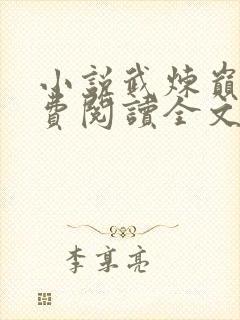 小說武煉巔
費閱讀全文
李享亮